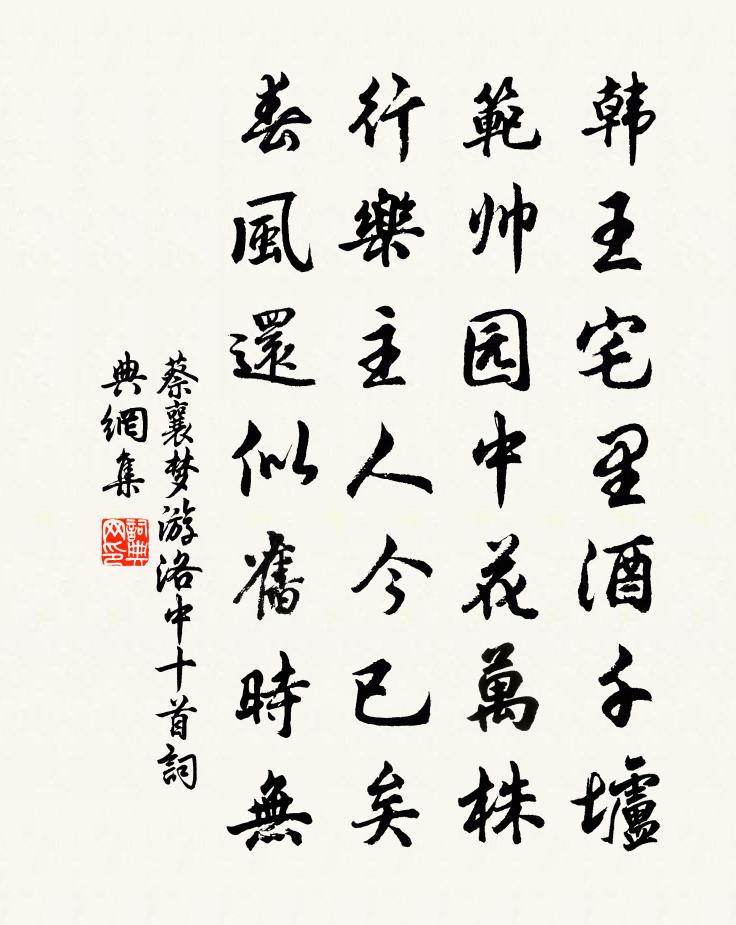 韩王宅里酒千壚
範帅园中花萬株
行樂主人今已矣
春風還似舊時無
蔡襄梦游洛中十首詞
典網集
詞典网印